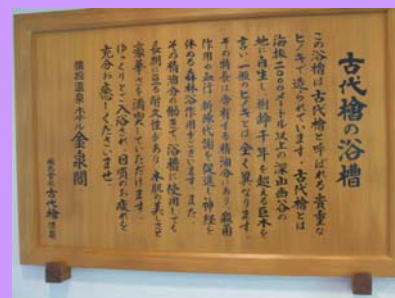 古代檜の浴槽
この浴槽は古代檜と呼ばれる貴重な
ヒノキで造られています。古代檜とは
海抜二〇〇〇メートル以上の深山幽谷の
地に自生し、樹齢千年を超える巨木を
言い一般のヒノキとは全く異なります。
その特長は含有する精油分にあり、殺菌
作用の血行・新陳代謝を促進し神経を
休める森林浴作用もございます。また、
その精油分の働きで、浴槽に使用しても
長期に亘る耐久性があり、木肌の美しさと
豪華さをご満喫していただけます。
ゆっくりとご入浴され、日頃のお疲れを
充分お癒しくださいませ。
温泉ホテル金泉閣
株式会社古代檜